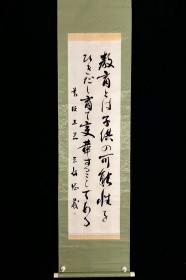 教育とは子供の可能性を
ひきだし育て変革することである